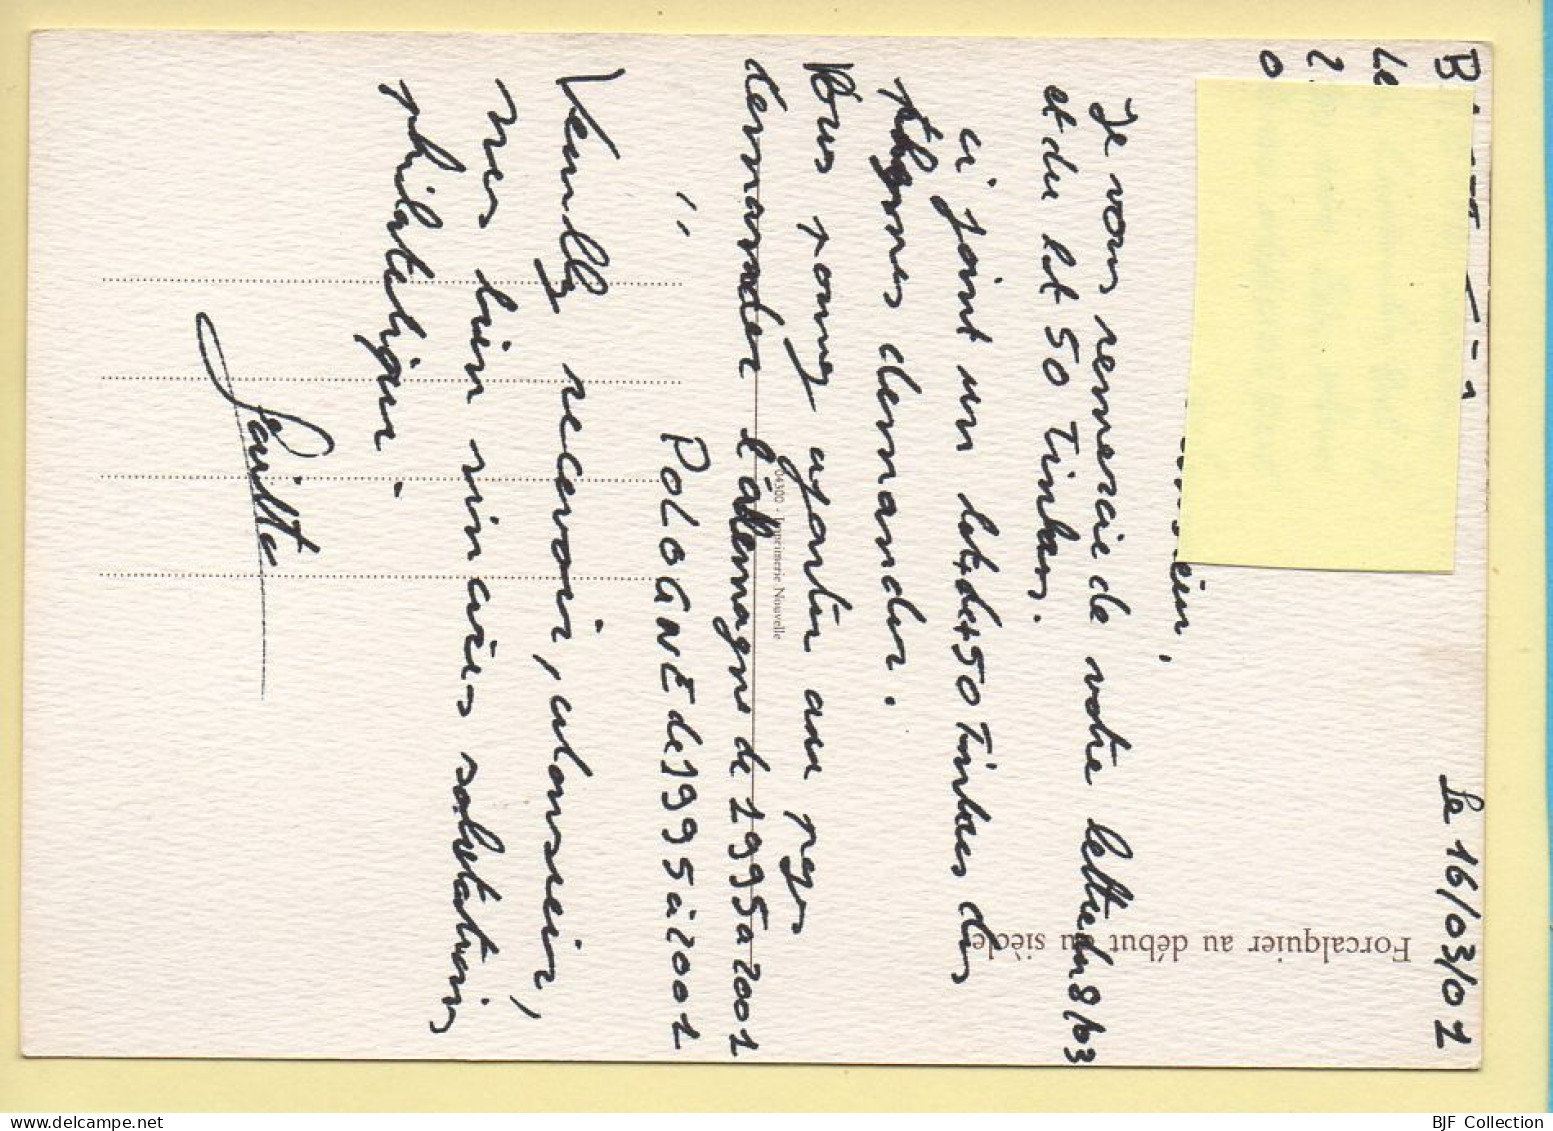 Le 16/03/01
Je vous remercie de votre lettre du 8/03
et du lot 50 Timbres.
ci joint un lot de 50 Timbres des
demander.
Vous pouvez ajouter aux pays
demander l'allemagne de 1995 a 2001
" POLOGNE de 1995 à 2001
Veuillez recevoir, Monsieur,
mes bien sincères salutations
philatelique.
Forcalquier au début du siècle
04300 - Imprimerie Nouvelle
BJF Collection